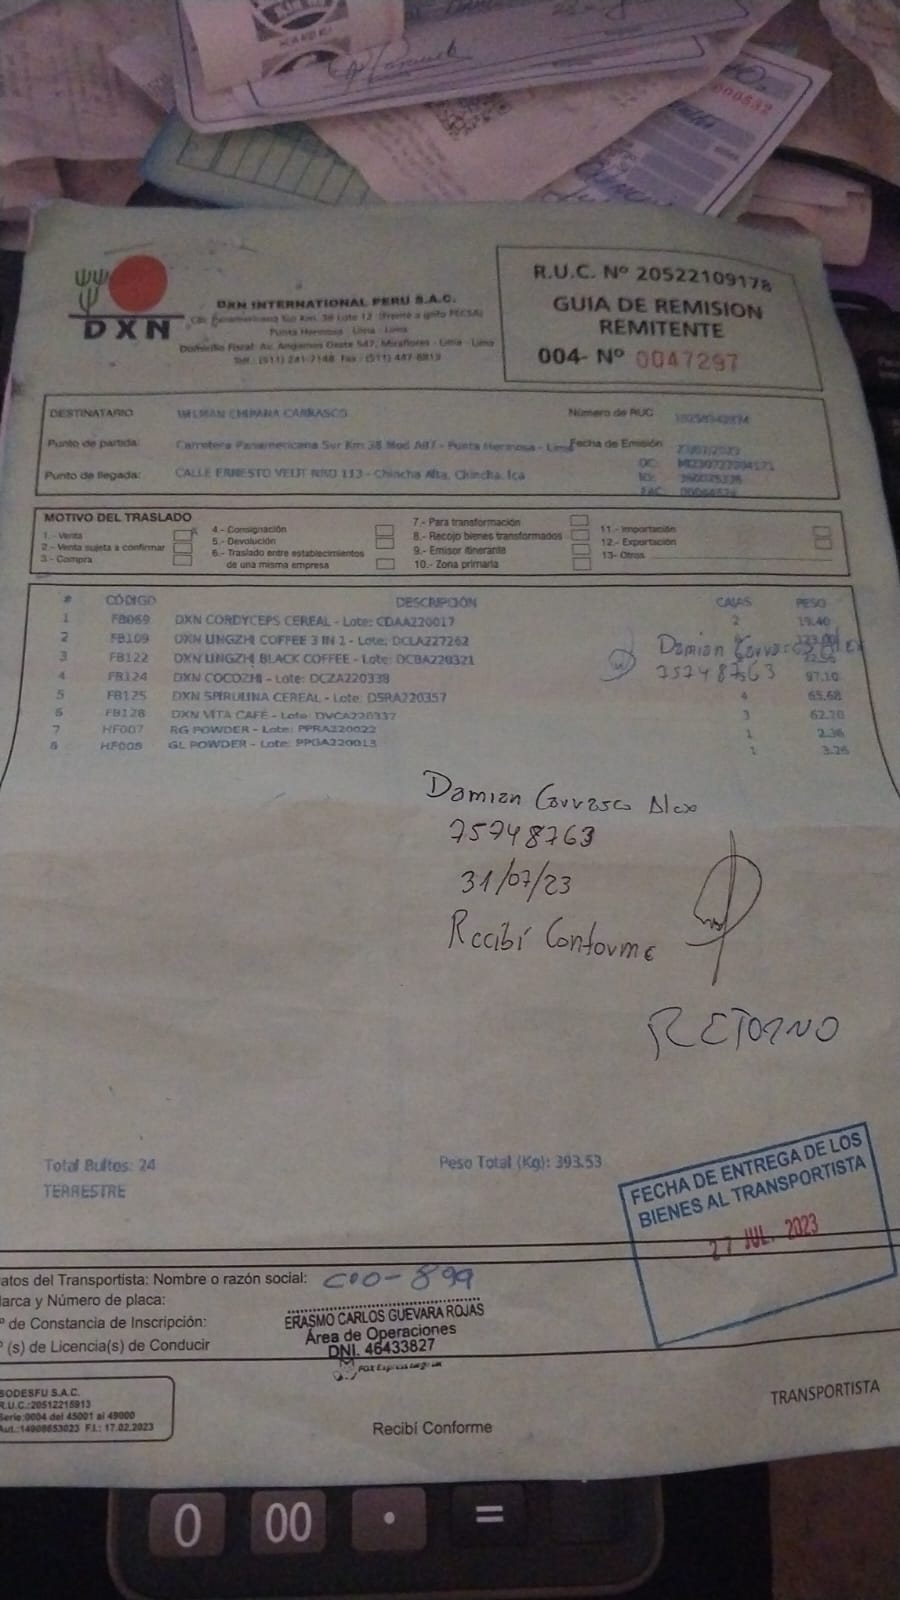 DXN
DXN INTERNATIONAL PERU S.A.C.
Car. Panamericana Sur Km. 38 Lote 12 (Frente a grifo PECSA)
Punta Hermosa - Lima - Lima
Domicilio Fiscal: Av. Angamos Oeste 547, Miraflores - Lima - Lima
Telf.: (511) 241-7148 Fax: (511) 447-8813
R.U.C. Nº 20522109178
GUIA DE REMISION
REMITENTE
004- Nº 0047297
DESTINATARIO CHIPANA CARRASCO Número de RUC
Punto de partida: Carretera Panamericana Sur Km 38 Mod A07 - Punta Hermosa - Lima Fecha de Emisión
OC:
Punto de llegada: CALLE ERNESTO VEIT NRO 113 - Chincha Alta, Chincha, Ica
FAC:
MOTIVO DEL TRASLADO
1.- Venta
2.- Venta sujeta a confirmar
3.- Compra
4.- Consignación
5.- Devolución
6.- Traslado entre establecimientos
de una misma empresa
7.- Para transformación
8.- Recojo bienes transformados
9.- Emisor itinerante
10.- Zona primaria
11.- Importación
12.- Exportación
13- Otros
# CÓDIGO DESCRIPCIÓN CAJAS PESO
1 FB069 DXN CORDYCEPS CEREAL - Lote: CDAA220017 2 19.40
2 FB109 DXN LINGZHI COFFEE 3 IN 1 - Lote: DCLA227262
3 FB122 DXN LINGZHI BLACK COFFEE - Lote: DCBA220321
4 FB124 DXN COCOZHI - Lote: DCZA220338 97.10
5 FB125 DXN SPIRULINA CEREAL - Lote: DSRA220357 4 65.68
6 FB128 DXN VITA CAFÉ - Lote: DVCA220337 3 62.20
7 HF007 RG POWDER - Lote: PPRA220022 1 2.36
8 HF008 GL POWDER - Lote: PPGA220013 1 3.26
Damian Carrasco Alex
75748763
Damian Carrasco Alex
75748763
31/07/23
Recibí Conforme
RETORNO
Total Bultos: 24 Peso Total (Kg): 393.53
TERRESTRE
FECHA DE ENTREGA DE LOS
BIENES AL TRANSPORTISTA
27 JUL. 2023
atos del Transportista: Nombre o razón social:
arca y Número de placa:
º de Constancia de Inscripción:
º (s) de Licencia(s) de Conducir
ERASMO CARLOS GUEVARA ROJAS
Área de Operaciones
DNI. 46433827
SODESFU S.A.C.
R.U.C.:20512215913
Serie:0004 del 45001 al 49000
Aut.:14908653023 F.I.: 17.02.2023
Recibí Conforme
TRANSPORTISTA
0 00 . =